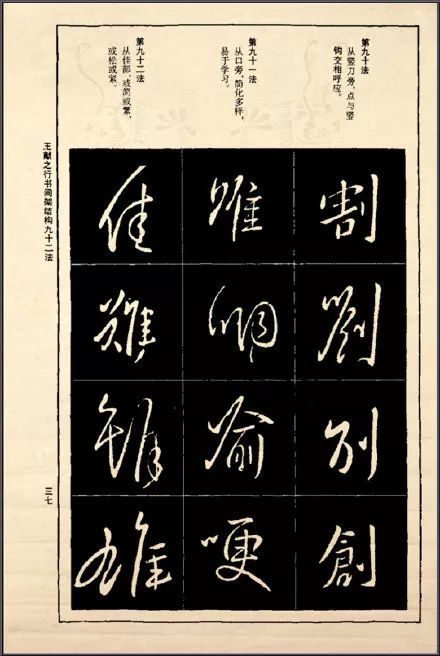 第九十法
从竖刀旁，点与竖
钩交相呼应。
第九十一法
从口旁，简化多样，
易于学习。
第九十二法
从佳部，或简或繁，
或松或紧。
割劉别創
唯喻哽
佳難雄
王献之行书间架结构九十二法
三七